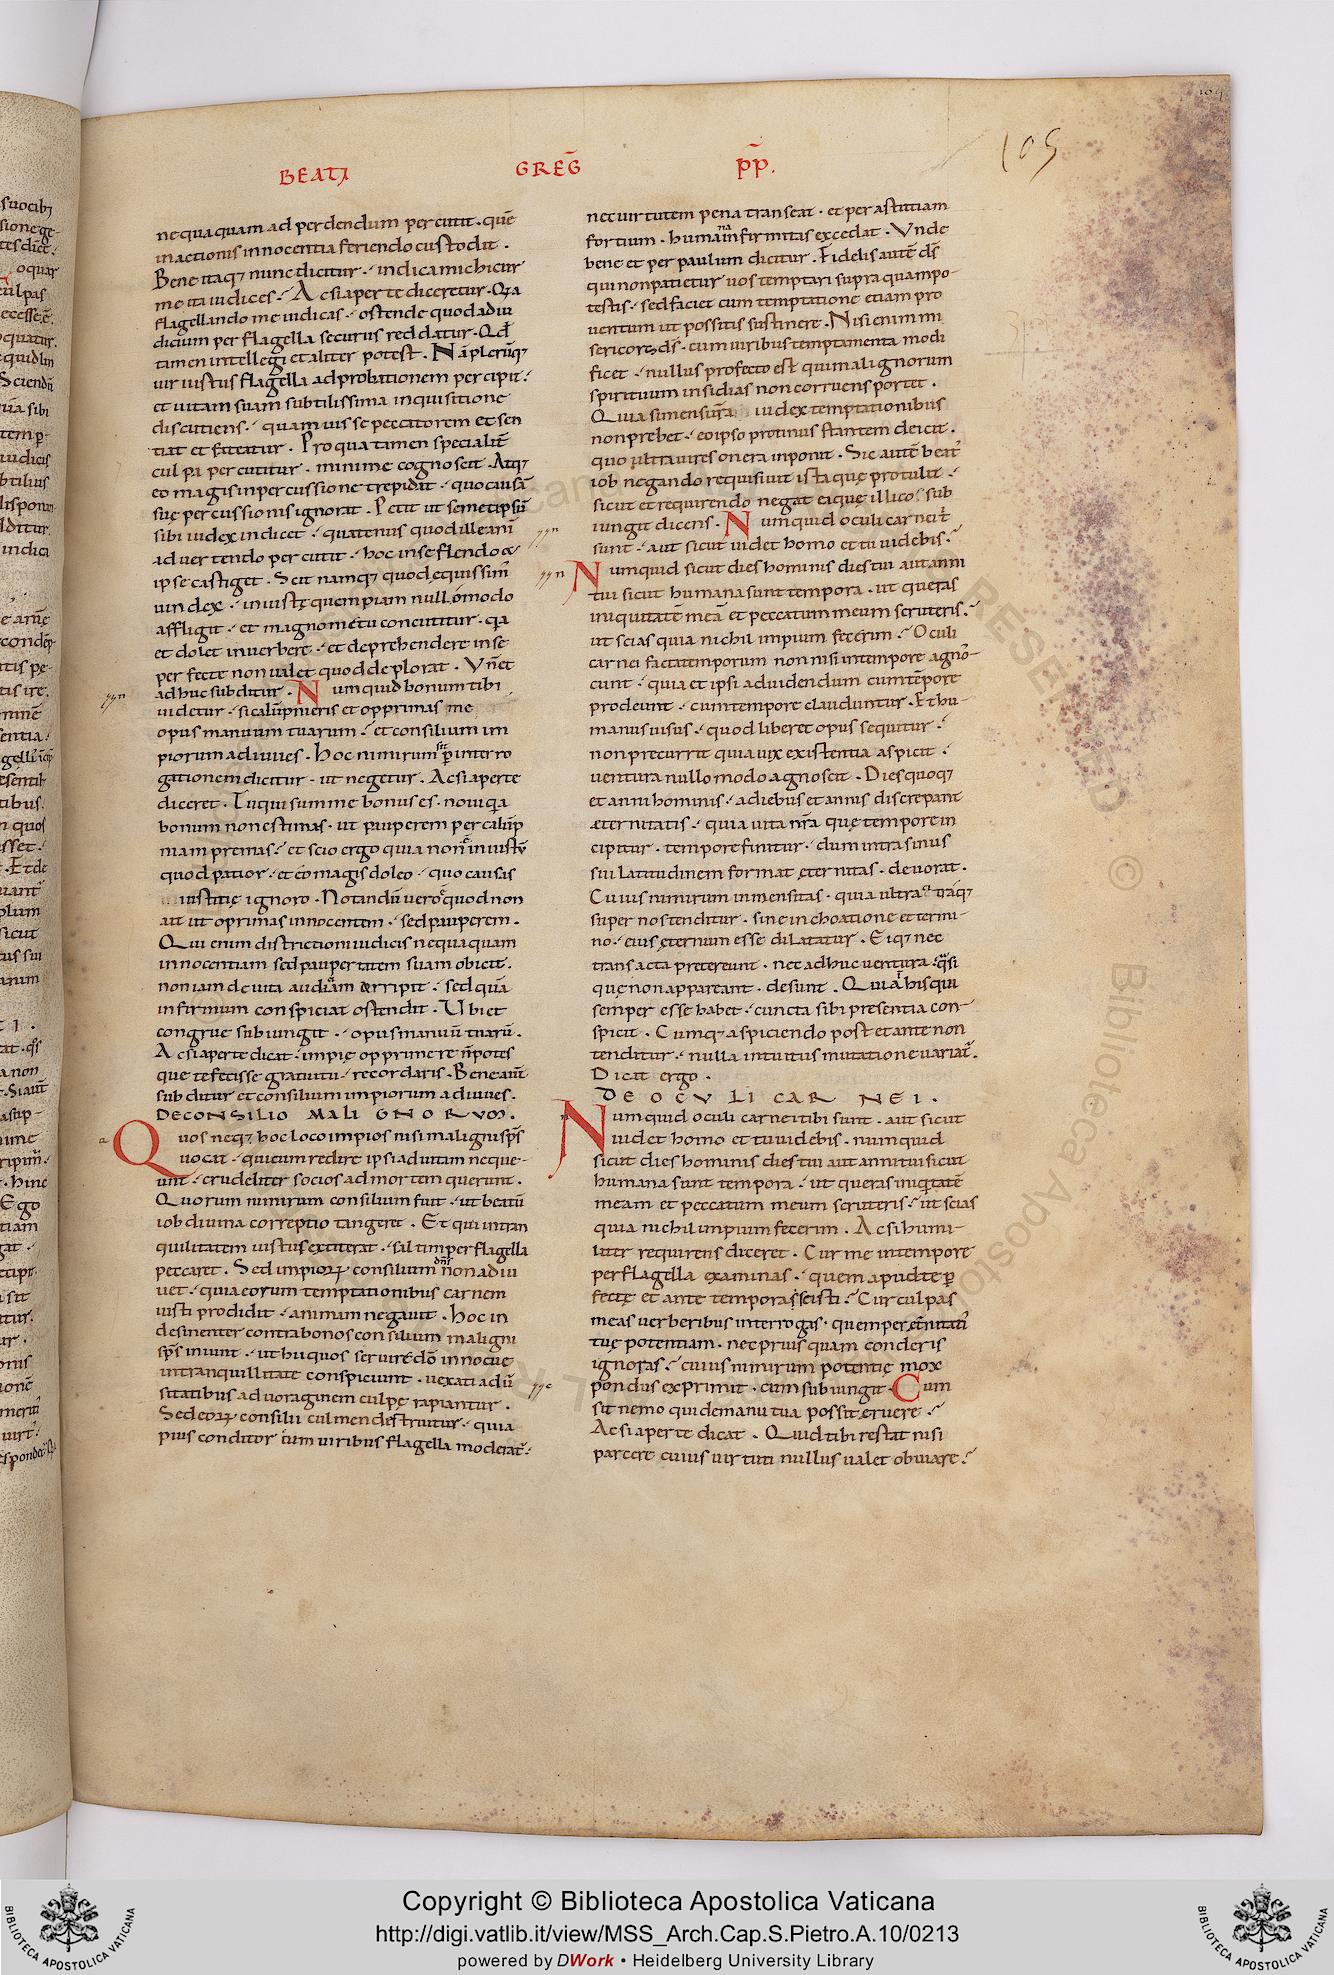 BEATI GREḠ P̄P.
105
nequaquam ad perdendum percutit · quē
inactionis innocentia feriendo custodit ·
Bene itaq; nunc dicitur · indica michi cur
me ita iudices · Ac si aperte diceretur · Qa
flagellando me iudicas · ostende quod adiu
dicium per flagella securus reddatur · Qd
tamen intellegi et aliter potest · Nā plerūq;
uir iustus flagella ad probationem percipit ·
et uitam suam subtilissima inquisitione
discutiens · quamuis se peccatorem et sen
tiat et fateatur · Pro qua tamen specialit̄
culpa percutitur · minime cognoscit · Atq;
eo magis in percussione trepidat · quo causā
suę percussionis ignorat · Petit ut semetipsū
sibi iudex indicet · quatenus quod ille eum
aduertendo percutit · hoc in se flendo &
ipse castiget · Scit namq; quod equissim̄
uindex · iniustę quempiam nullomodo
affligit · et magno metu concutitur · qa
et dolet in uerbere · et deprehendere in se
perfecte non ualet quod deplorat · Vn̄ et
adhuc subditur · Numquid bonum tibi
uidetur · si calūpnieris et opprimas me
opus manuum tuarum · et consilium im
piorum adiuues · Hoc nimirum sic p̄ interro
gationem dicitur · ut negetur · Ac si aperte
diceret · Tu qui summe bonus es · noui qa
bonum non estimas · ut pauperem per calūp
niam premas · et scio ergo quia non iniustū
quod patior · et eo magis doleo · quo causas
iustitię ignoro · Notandū uero quod non
ait ut oprimas innocentem · sed pauperem ·
Qui enim districtioni iudicis nequaquam
innocentiam sed paupertatem suam obicit ·
non iam de uita audatiam arripit · sed quā
infirmum conspiciat ostendit · Vbi et
congrue subiungit · opus manuū tuarū ·
Ac si aperte dicat · impie opprimere n̄ potes
que te fecisse gratuitu recordaris · Bene aut̄
subditur et consilium impiorum adiuues ·
DE CONSILIO MALIGNORVM ·
Quos neq; hoc loco impios nisi malignos sp̄s
uocat · qui cum redire ipsi ad uitam neque-
unt · crudeliter socios ad mortem querunt ·
Quorum nimirum consilium fuit · ut beatū
iob diuina correptio tangeret · Et qui in tran
quilitatem iustus extiterat · saltim per flagella
peccaret · Sed impioꝝ consilium dn̄s non adiu
uet · quia eorum temptationibus carnem
iusti prodidit · animam negauit · Hoc in
desinenter contra bonos consilium maligni
sp̄s iniunt · ut hii quos seruire dō innocue
in tranquillitate conspiciunt · uexati adū
sitatibus ad uoraginem culpę rapiantur ·
Sed eoꝝ consilii culmen destruitur · quia
pius conditor cum uiribus flagella moderat̄ ·
nec uirtutem pena transeat · et per astutiam
fortium · humana infirmitas excedat · Vnde
bene et per paulum dicitur · Fidelis autē ds̄
qui non patietur uos temptari supra quam po-
testis · sed faciet cum temptatione etiam pro
uentum ut possitis sustinere · Nisi enim mi
sericors ds̄ · cum uiribus temptamenta modi
ficet · nullus profecto est qui malignorum
spirituum insidias non corruens portet ·
Quia si mensurā iudex temptationibus
non prebet · eo ipso protinus stantem deicit ·
quo ultra uires onera inponit · Sic autē beat
iob negando requisiuit ista quę protulit ·
sicut et requirendo negat eique illico · sub
iungit dicens · Numquid oculi carnei t̄
sunt · aut sicut uidet homo et tu uidebis ·
Numquid sicut dies hominis dies tui aut anni
tui sicut humana sunt tempora · ut queras
iniquitatē meā et peccatum meum scruteris ·
ut scias quia nichil impium fecerim · Oculi
carnei facta temporum non nisi in tempore agno-
scunt · quia et ipsi ad uidendum cum tēpore
prodeunt · cum tempore clauduntur · Et hu-
manus uisus · quodliberet opus sequitur ·
non precurrit quia uix existentia aspicit ·
uentura nullo modo agnoscit · Dies quoq;
et anni hominis · a diebus et annis discrepant
æternitatis · quia uita nr̄a quę tempore in
cipitur · tempore finitur · dum intra sinus
sui latitudinem format ęternitas · deuorat ·
Cuius nimirum inmensitas · quia ultra citraq;
super nos tenditur · sine inchoatione et termi-
no · eius ęternum esse dilatatur · Eiq; nec
transacta pretereunt · nec adhuc uentura · qasi
quę non appareant · desunt · Quia his qui
semper esse habet · cuncta sibi presentia con-
spicit · Cumq; aspiciendo post et ante non
tenditur · nulla intuitus mutatione uariat̄ ·
Dicat ergo ·
DE OCVLI CARNEI ·
Numquid oculi carnei tibi sunt · aut sicut
uidet homo et tu uidebis · numquid
sicut dies hominis dies tui aut anni tui sicut
humana sunt tempora · ut queras iniqitatē
meam et peccatum meum scruteris · ut scias
quia nichil impium fecerim · Ac si humi-
liter requirens diceret · Cur me in tempore
per flagella examinas · quem apud te per
fectę et ante tempora scisti · Cur culpas
meas uerberibus interrogas · quem per ęternitatē
tuę potentiam · nec prius quam conderis
ignoras · cuius nimirum potentię mox
pondus exprimit · cum subiungit · Cum
sit nemo qui de manu tua possit eruere ·
Ac si aperte dicat · Quid tibi restat nisi
parcere cuius uirtuti nullus ualet obuiare ·
Copyright © Biblioteca Apostolica Vaticana
http://digi.vatlib.it/view/MSS_Arch.Cap.S.Pietro.A.10/0213
powered by DWork • Heidelberg University Library
BIBLIOTECA APOSTOLICA VATICANA
BIBLIOTECA APOSTOLICA VATICANA